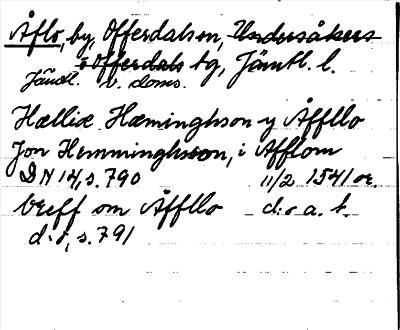 Åflo, by, Offerdals sn, Undersåkers
i Offerdals tg, Jämtl. l.
Jämtl. v. doms.
Hællie Hæminghson y Åffllo
Jon Hemminghsson, i Afflom
DN 14, s. 790 11/2 1541 or.
breff om Åffllo d:o a. k.
d:o, s. 791